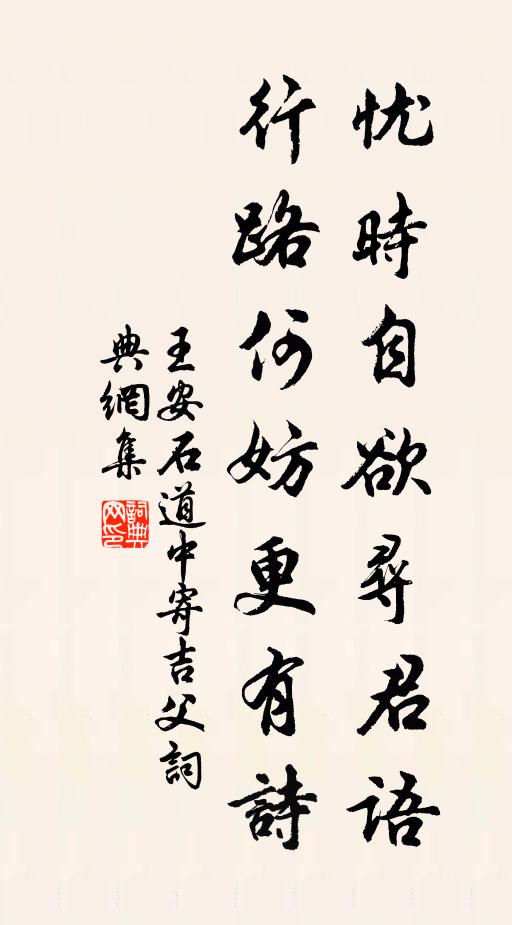 忧時自欲尋君語
行路何妨更有詩
王安石道中寄吉父詞
典網集
詞典网印